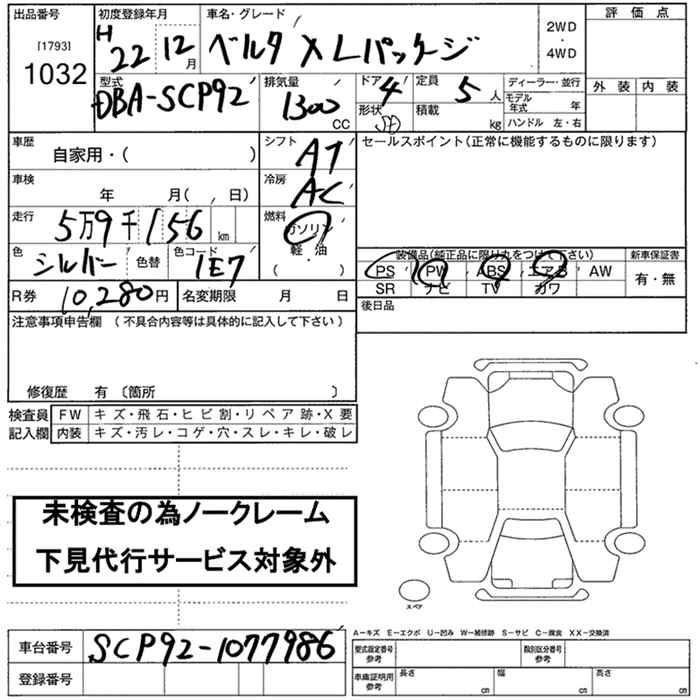 出品番号 初度登録年月 車名・グレード 評価点
[1793] H 2WD
1032 22 12月 ベルタ XLパッケージ ・
4WD
型式 排気量 ドア 定員 ディーラー・並行 外装 内装
DBA-SCP92 1300 4 5人 モデル年式 年
CC 形状 積載 kg ハンドル 左・右
車歴 シフト セールスポイント(正常に機能するものに限ります)
自家用・( ) AT
車検 冷房
年 月( 、 日) AC
走行 燃料
5万9千156km ガソリン
色 色コード 軽・油 装備品(純正品に限り丸をつけて下さい) 新車保証書
シルバー 色替 1E7 ( ) PS PW ABS エアB AW 有・無
R券 10,280円 名変期限 月 日 SR ナビ TV カワ
注意事項申告欄(不具合内容等は具体的に記入して下さい) 後日品
修復歴 有〔箇所 〕
検査員 FW キズ・飛石・ヒビ割・リペア跡・X要
記入欄 内装 キズ・汚レ・コゲ・穴・スレ・キレ・破レ
未検査の為ノークレーム
下見代行サービス対象外
スペア
A－キズ E－エクボ U－凹み W－補修跡 S－サビ C－腐食 XX－交換済
車台番号 SCP92-1077986 型式指定番号 参考 類別区分番号 参考
登録番号 車庫証明用 参考 長さ cm 幅 cm 高さ cm